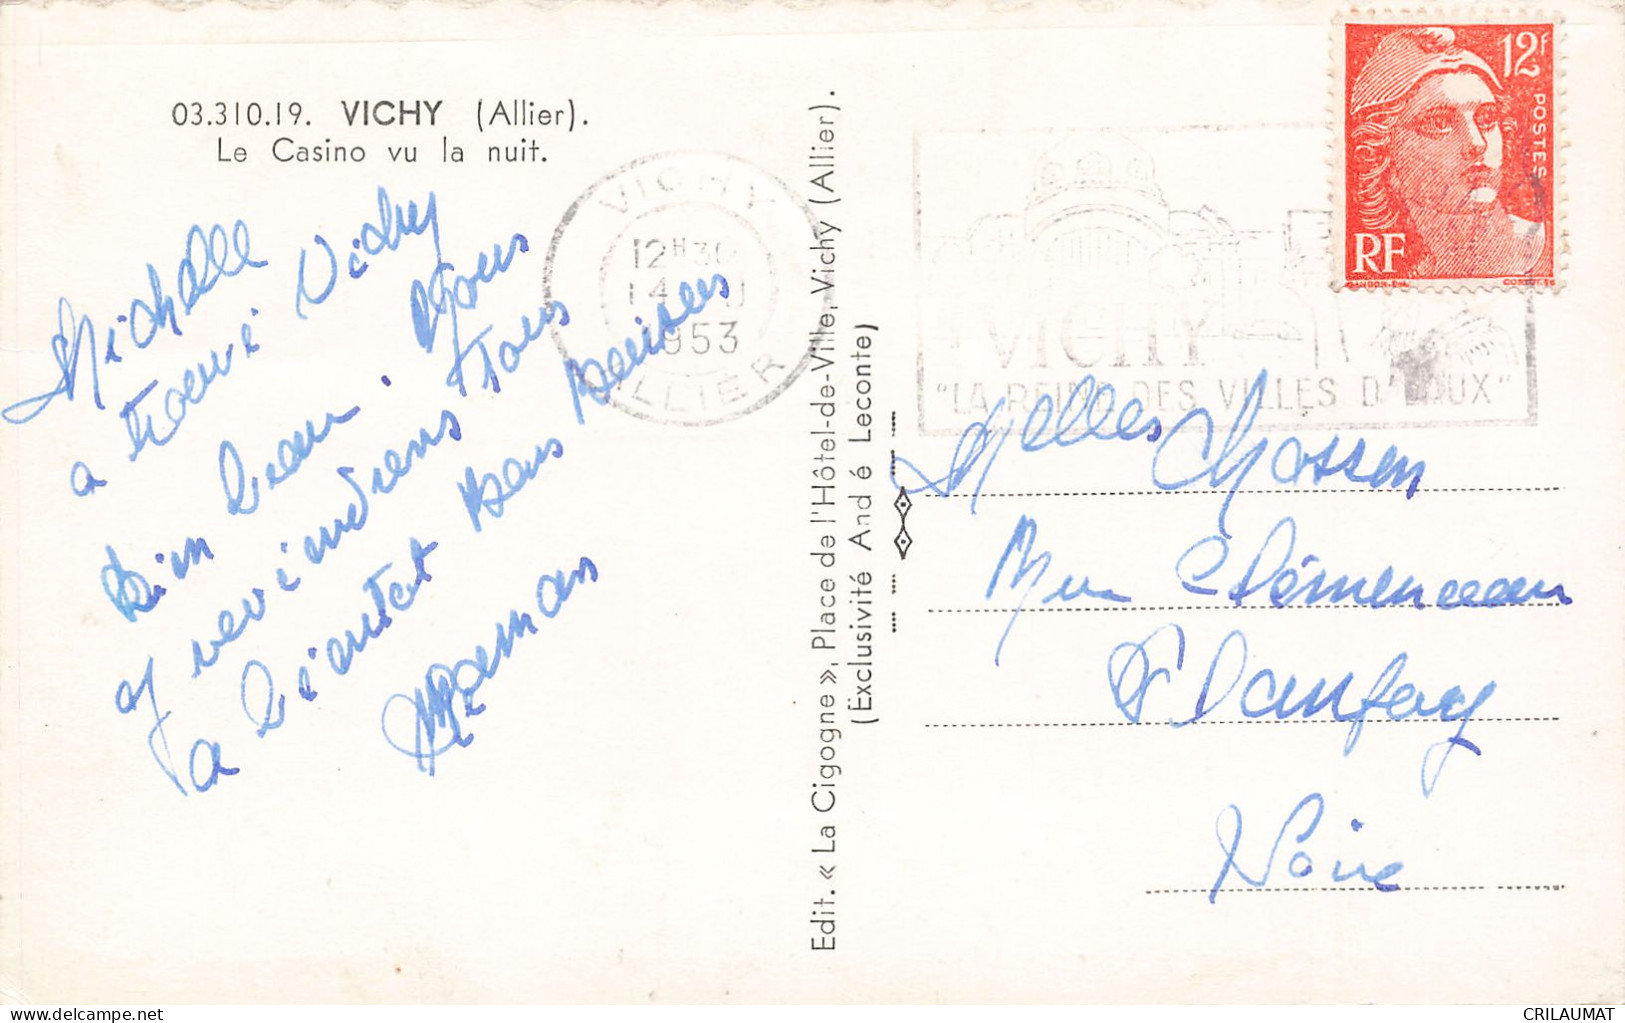 03.310.19. VICHY (Allier).
Le Casino vu la nuit.
Michelle
a trouvé Vichy
bien beau. Nous
y reviendrons tous
à bientôt Bons Baisers
Maman
VICHY
12H30
14
1953
ALLIER
Edit. « La Cigogne », Place de l'Hôtel-de-Ville, Vichy (Allier).
(Exclusivité And é Leconte)
VICHY
"LA REINE DES VILLES D'EAUX"
12F
POSTES
RF
GANDON-DEL.
CORTOT-SC
Melles Masson
Rue Clémenceau
Planfoy
Loire
CRILAUMAT